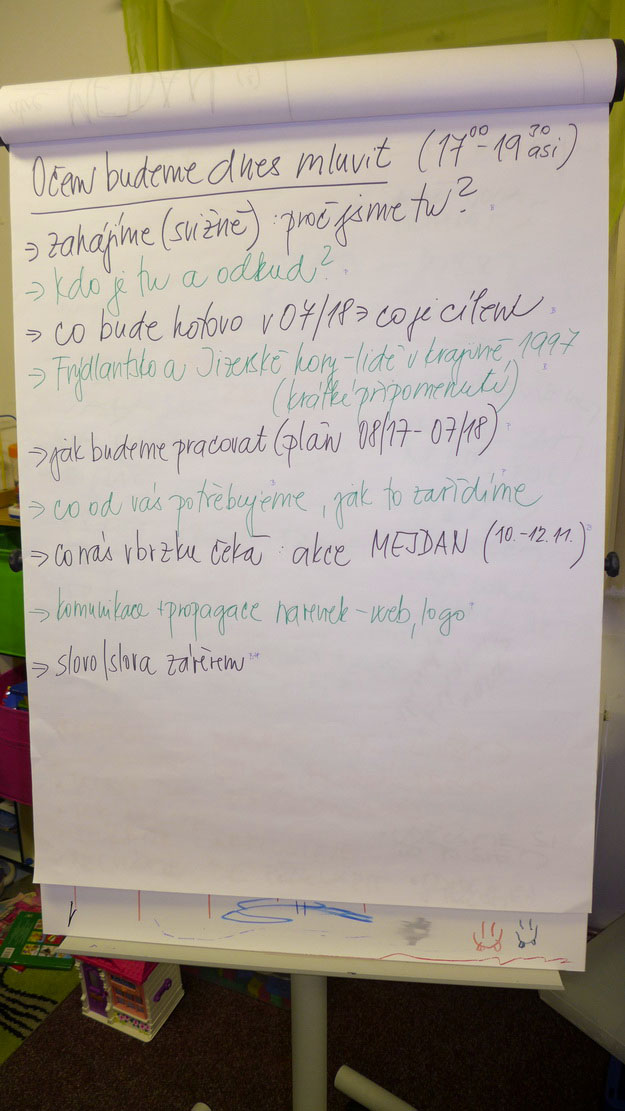 Očem budeme dnes mluvit (17⁰⁰-19³⁰ asi)
⇒ zahájíme (svižně) : proč jsme tu?
⇒ kdo je tu a odkud?
⇒ co bude hotovo v 07/18 ⇒ co je cílem
⇒ Frýdlantsko a Jizerské hory - lidé v krajině, 1997
(krátké připomenutí)
⇒ jak budeme pracovat (plán 08/17 - 07/18)
⇒ co od vás potřebujeme, jak to zařídíme
⇒ co nás vbrzku čeká : akce MEJDAN (10.-12.11.)
⇒ komunikace + propagace navenek - web, logo
⇒ slovo/slova závěrem